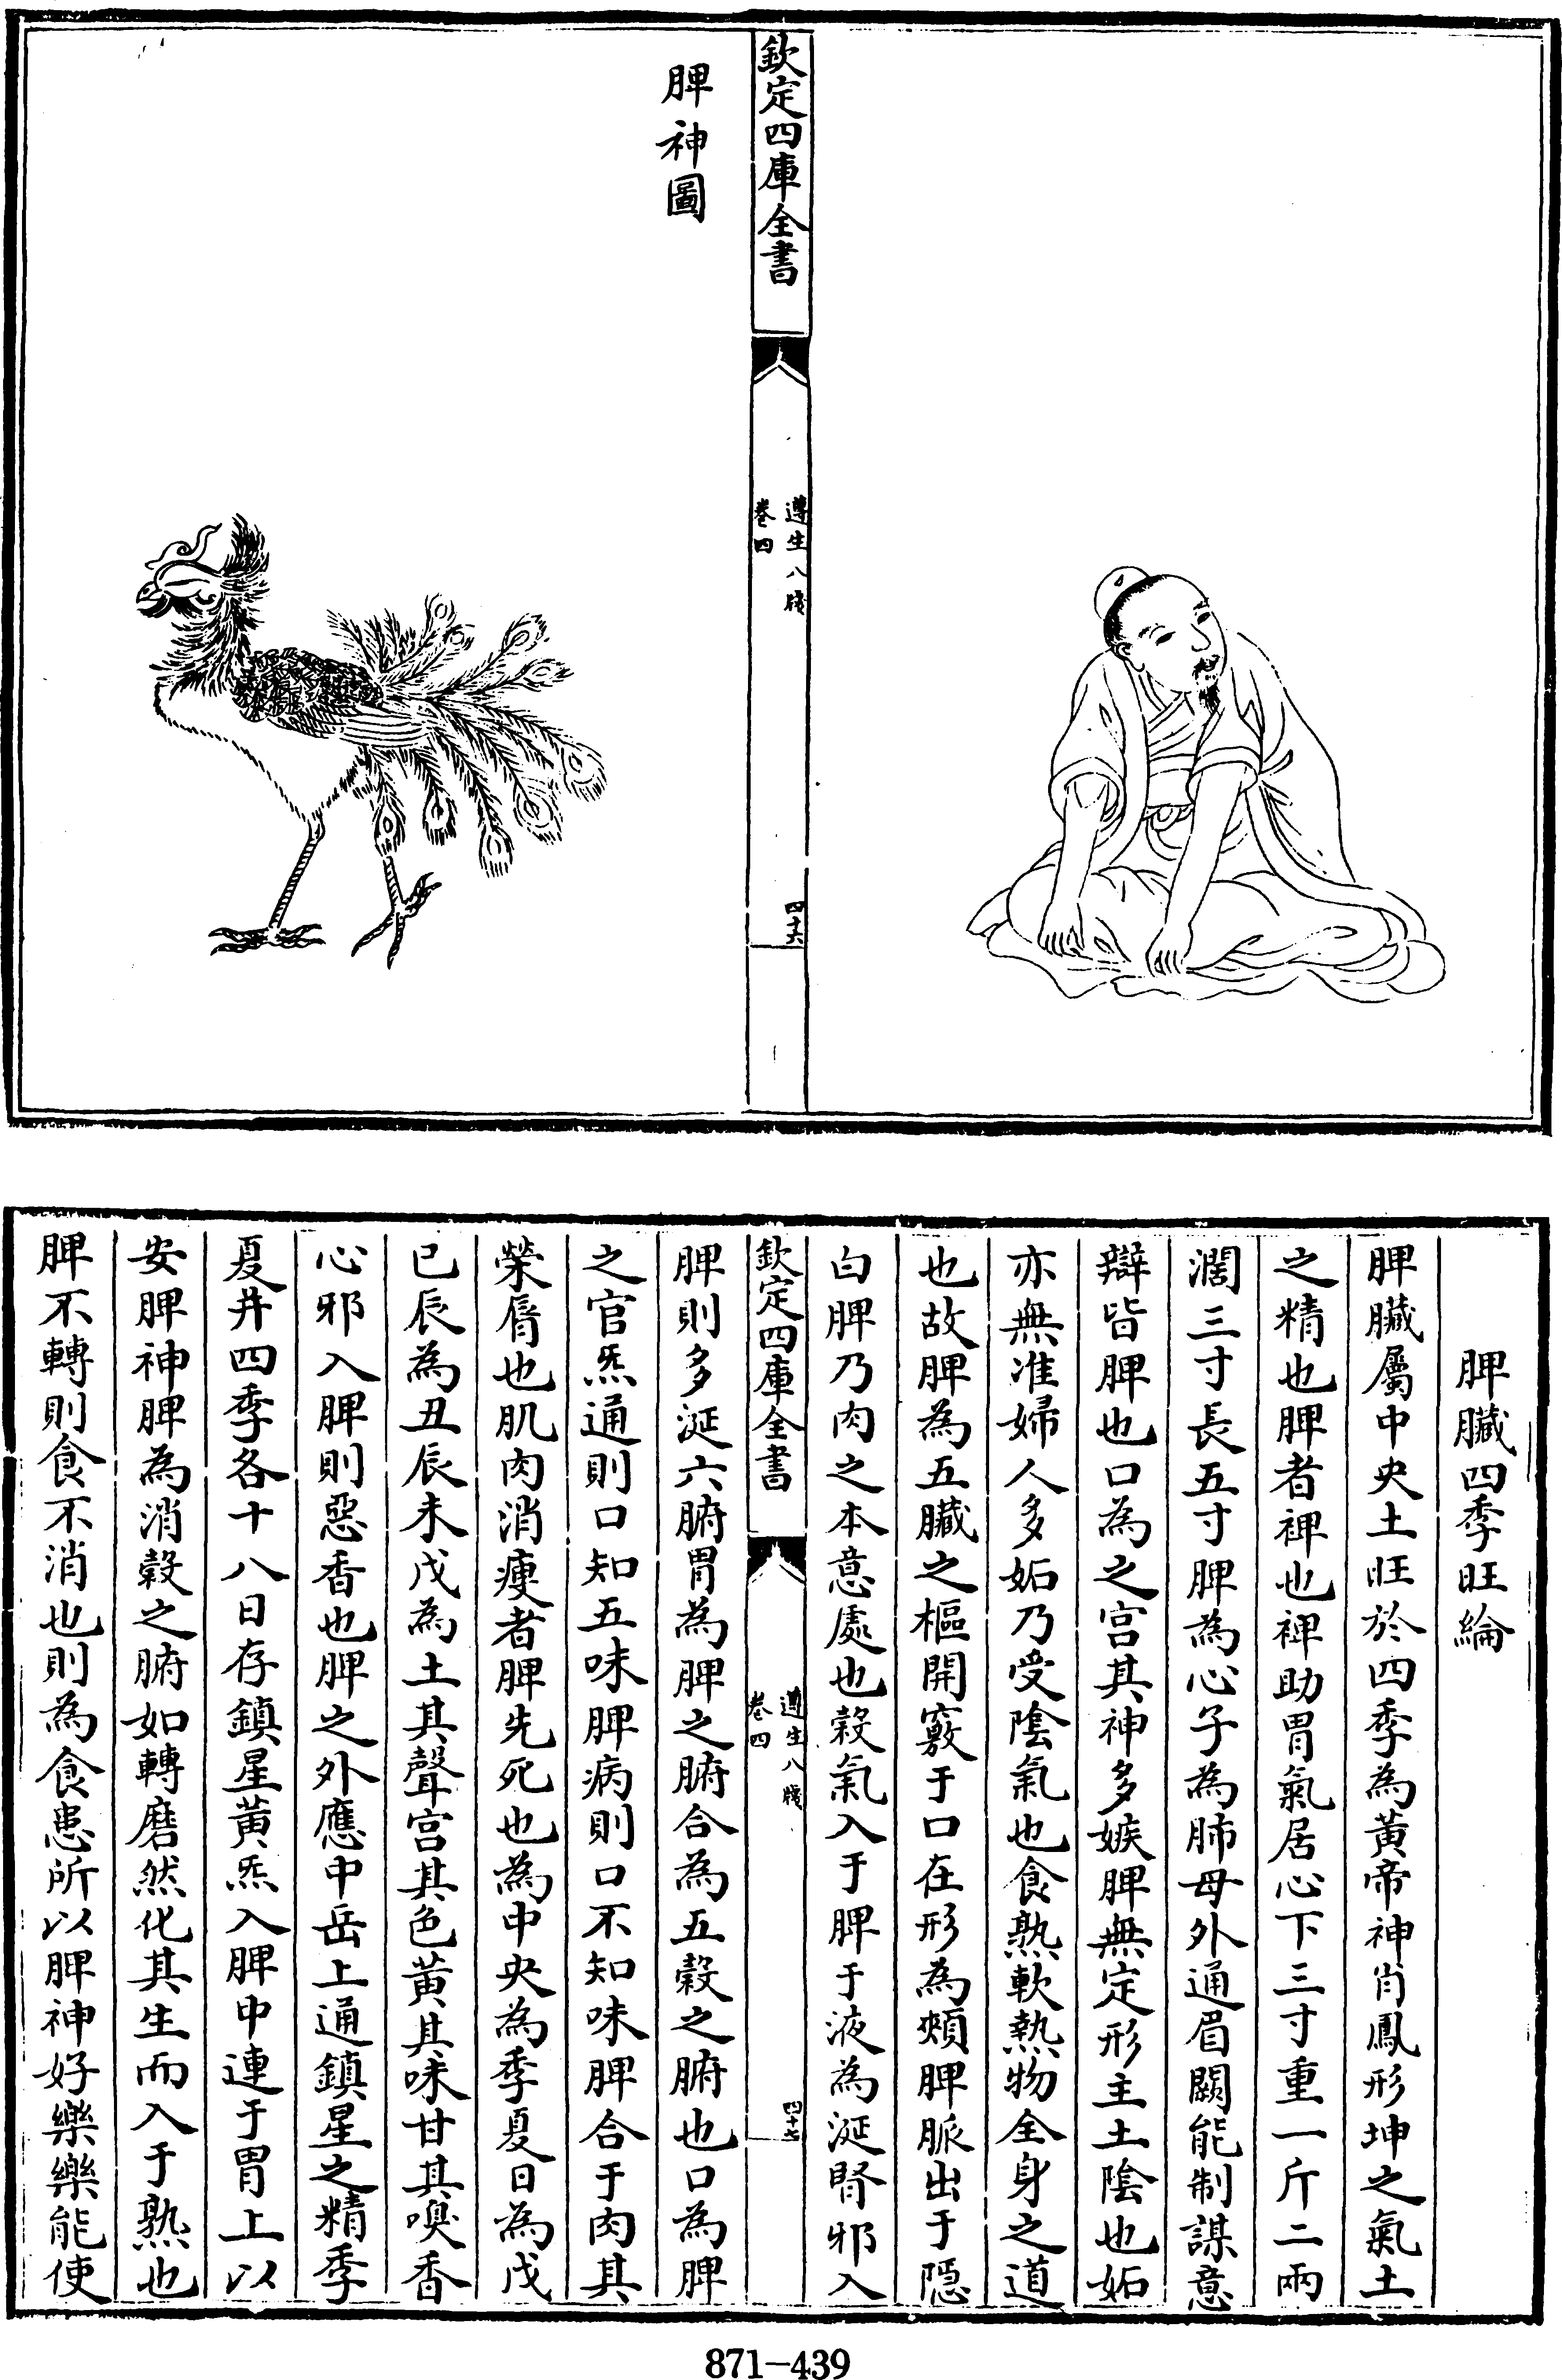 欽定四庫全書
遵生八牋
卷四
四十六
脾神圖
脾臟四季旺論
脾臟屬中央土旺於四季為黃帝神肖鳳形坤之氣土
之精也脾者裨也裨助胃氣居心下三寸重一斤二兩
濶三寸長五寸脾為心子為肺母外通眉闕能制謀意
辯皆脾也口為之宫其神多嫉脾無定形主土陰也妬
亦無准婦人多妬乃受陰氣也食熟軟熱物全身之道
也故脾為五臟之樞開竅于口在形為頰脾脈出于隱
白脾乃肉之本意處也穀氣入于脾于液為涎腎邪入
欽定四庫全書
遵生八牋
卷四
四十七
脾則多涎六腑胃為脾之腑合為五穀之腑也口為脾
之官炁通則口知五味脾病則口不知味脾合于肉其
榮脣也肌肉消瘦者脾先死也為中央為季夏日為戊
已辰為丑辰未戌為土其聲宫其色黃其味甘其嗅香
心邪入脾則惡香也脾之外應中岳上通鎮星之精季
夏并四季各十八日存鎮星黃炁入脾中連于胃上以
安脾神脾為消穀之腑如轉磨然化其生而入于熟也
脾不轉則食不消也則為食患所以脾神好樂樂能使
871-439